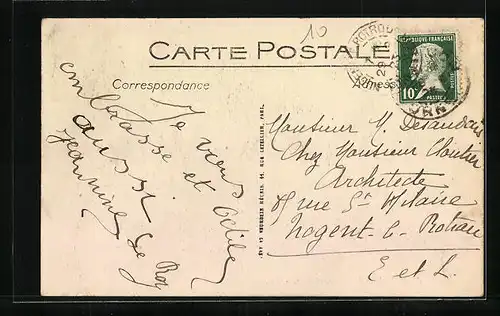 10
CARTE POSTALE
Correspondance
Adresse
REPUBLIQUE FRANÇAISE
10c
POSTES
Je vous
embrasse et
aussi
Jeannine Le Roy
Monsieur M. Desaudais
Chez Monsieur
Architecte
rue St Hilaire
Nogent-le-Rotrou
E et L.